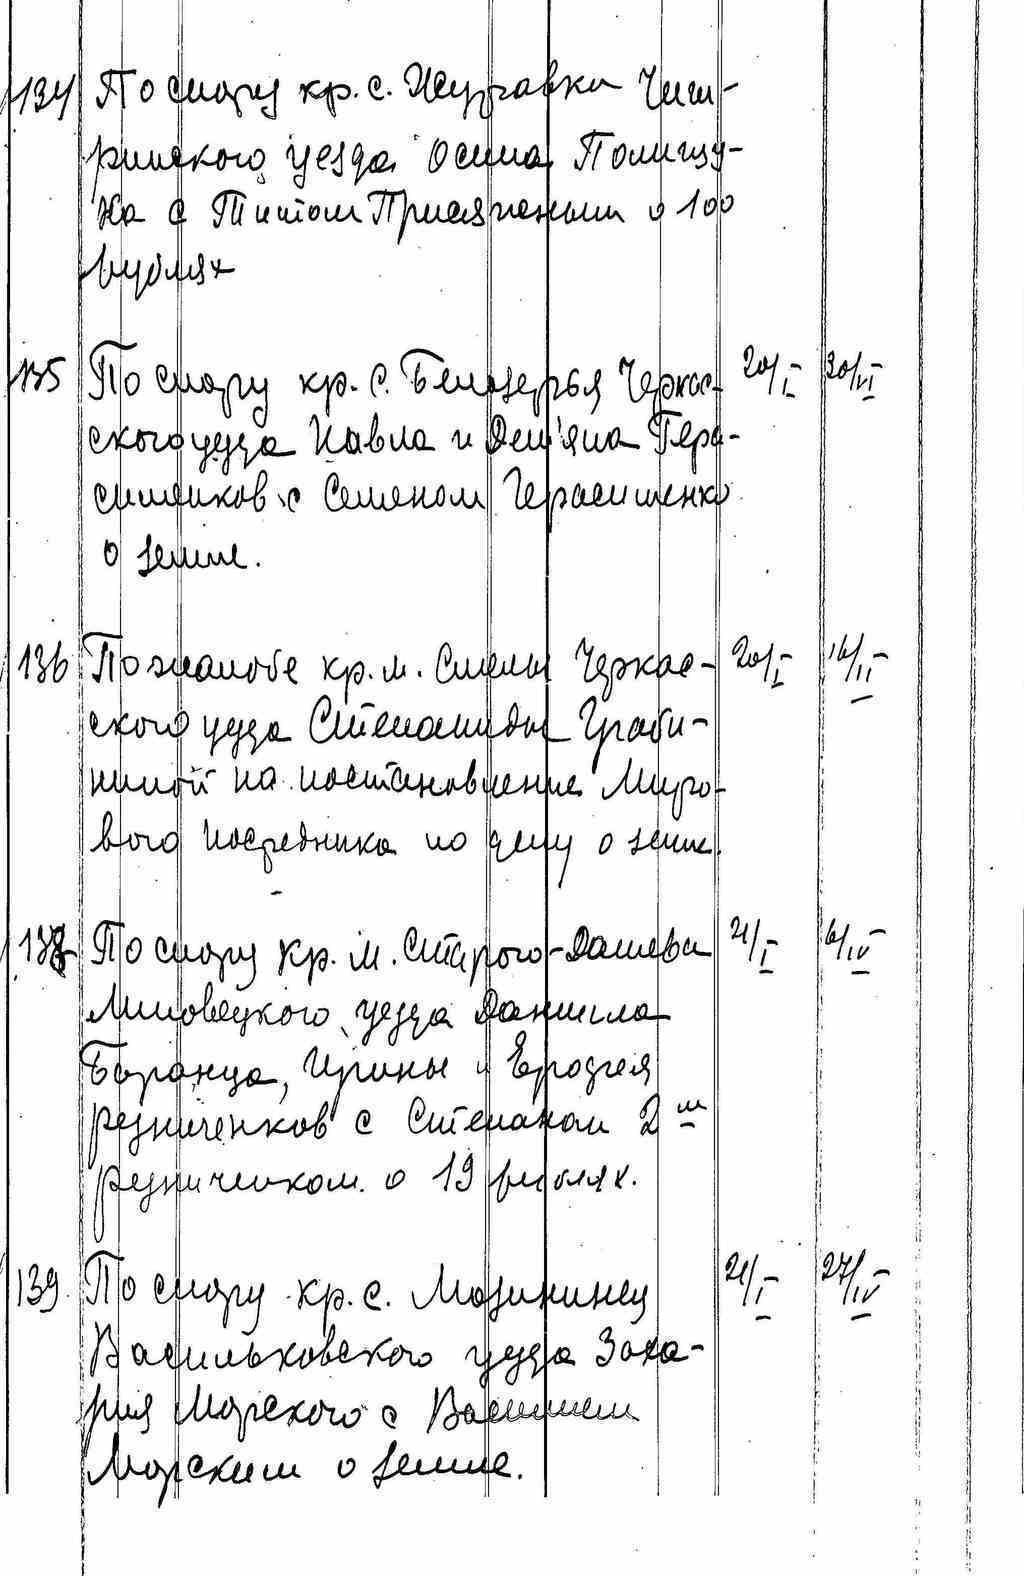 134 По спору кр. с. Журавки Чиги-
ринского уезда Осипа Полищу-
ка с Титом Присяжным о 100
рублях
135 По спору кр. с. Белозерья Черкас- 20/I 30/VI
ского уезда Павла и Демьяна Гера-
сименков с Семеном Герасименко
о земле.
136 По жалобе кр. м. Смелы Черкас- 20/I 16/II
ского уезда Степаниды Граби-
ниной на постановление Миро-
вого посредника по делу о земле.
138 По спору кр. м. Старого-Дашева 21/I 6/IV
Липовецкого уезда Даниила
Баранца, Ирины и Ерофея
Резниченков с Степаном 2м
Резниченком о 19 рублях.
139 По спору кр. с. Мазининец 21/I 27/IV
Васильковского уезда Заха-
рия Морского с Василием
Морским о земле.